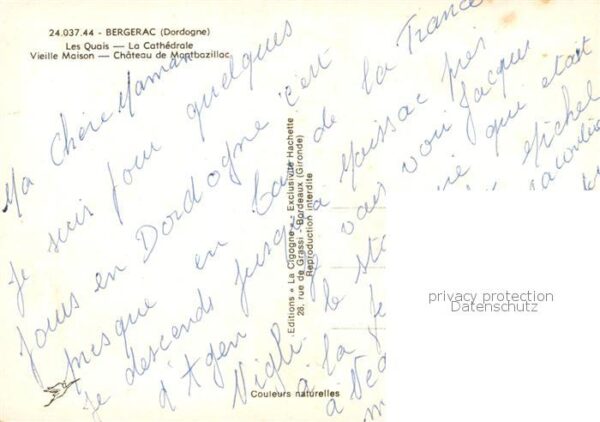 24.037.44 - BERGERAC (Dordogne)
Les Quais — La Cathédrale
Vieille Maison — Château de Montbazillac
Ma Chère Maman
Je suis pour quelques
jours en Dordogne c'est
presque en bas de la France
je descends jusqu'à Moissac près
d'Agen je vais voir Jacques
qui était
Michel
à la
Editions « La Cigogne » - Exclusivité Hachette
28, rue de Grassi - Bordeaux (Gironde)
Reproduction interdite
Couleurs naturelles
privacy protection
Datenschutz